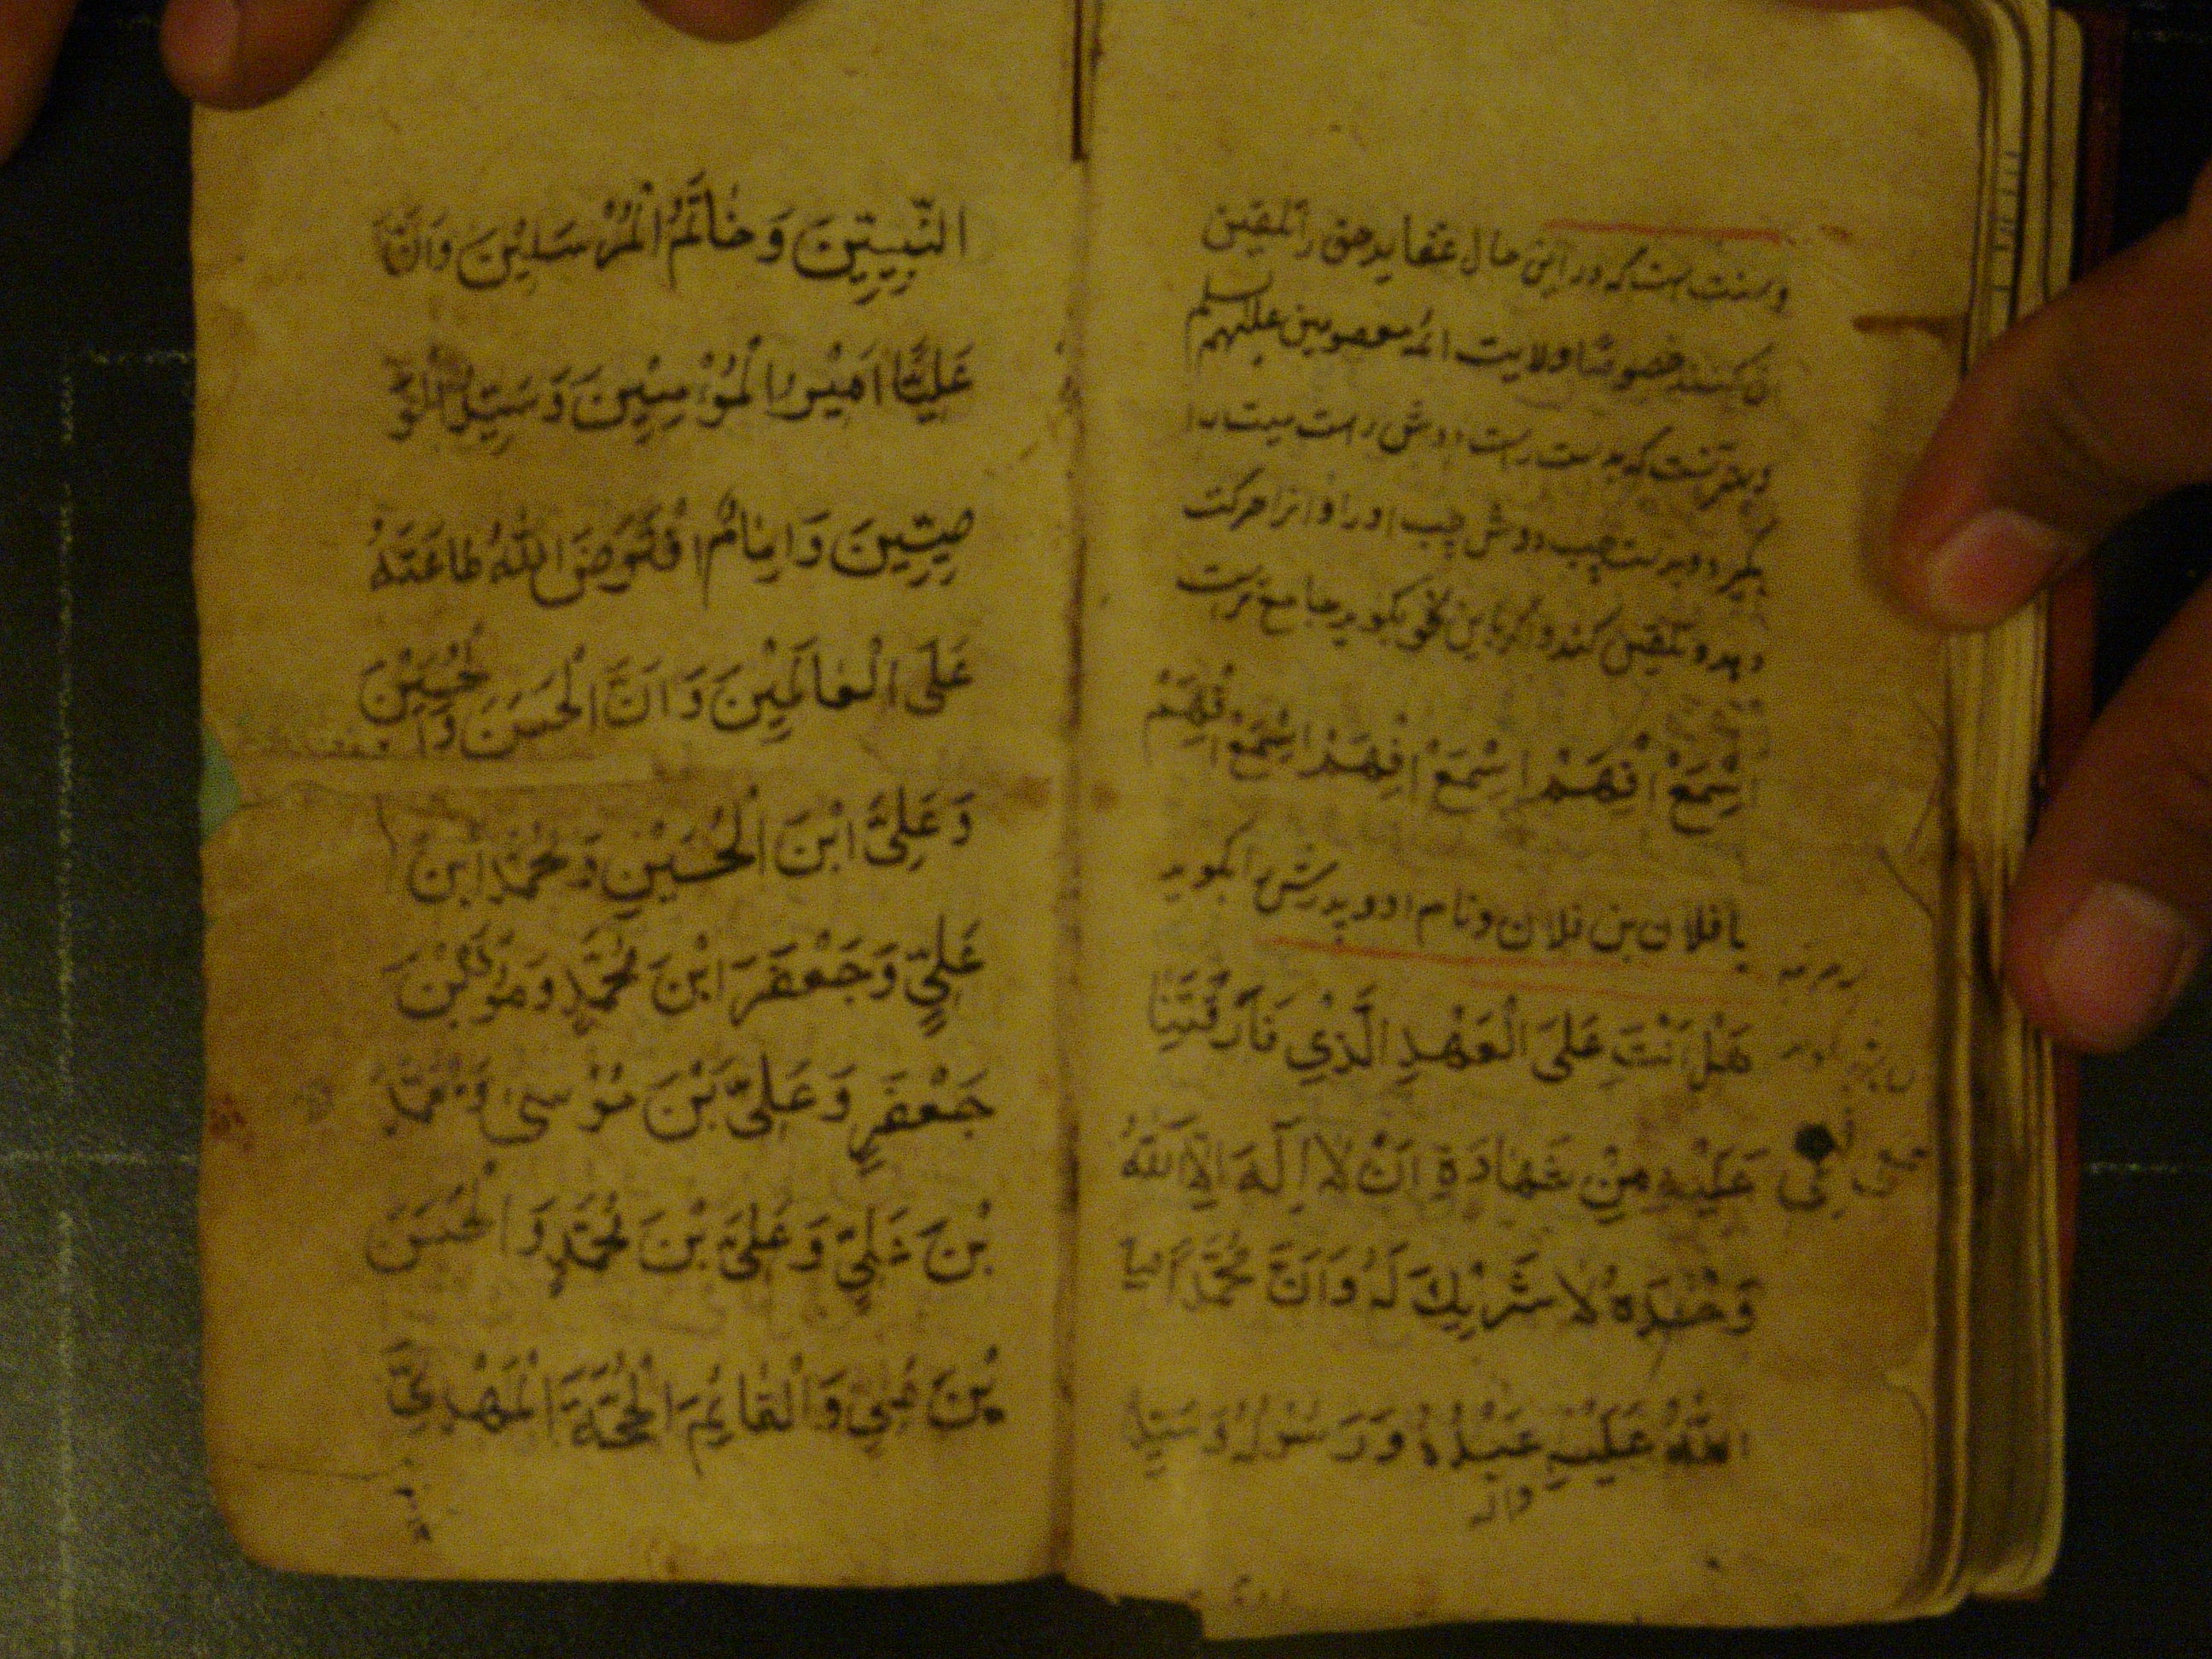 و سنت است که در این حال عقاید حق را تلقین
کنند خصوصًا ولایت ائمه معصومین علیهم السلم
و بهتر آنست که بدست راست دوش راست میت را
بگیرد و بدست چپ دوش چپ او را و انرا حرکت
دهد و تلقین کند و اگر باین نحو بگوید جامع ترست
اِسْمَعْ اِفْهَمْ اِسْمَعْ اِفْهَمْ اِسْمَعْ اِفْهَمْ
یا فلان بن فلان و نام او و پدرش را بگوید
هَلْ اَنْتَ عَلَی الْعَهْدِ الَّذِي فَارَقْتَنَا
عَلَيْهِ مِنْ شَهَادَةِ اَنْ لَا اِلٰهَ اِلَّا اللّٰهُ
وَحْدَهُ لَا شَرِيْكَ لَهُ وَاَنَّ مُحَمَّدًا صلی
اللّٰهُ عَلَيْهِ عَبْدُهُ وَرَسُوْلُهُ وَسَيِّدُ
واله
النَّبِيِّيْنَ وَخَاتَمُ الْمُرْسَلِيْنَ وَاَنَّ
عَلِيًّا اَمِيْرُ الْمُؤْمِنِيْنَ وَسَيِّدُ الْوَ
صِيِّيْنَ وَاِمَامٌ اِفْتَرَضَ اللّٰهُ طَاعَتَهُ
عَلَی الْعَالَمِيْنَ وَاَنَّ الْحَسَنَ وَالْحُسَيْنَ
وَعَلِيَّ ابْنَ الْحُسَيْنِ وَمُحَمَّدَ ابْنَ
عَلِيٍّ وَجَعْفَرَ ابْنَ مُحَمَّدٍ وَمُوْسَی بْنَ
جَعْفَرٍ وَعَلِيَّ بْنَ مُوْسٰی وَمُحَمَّدَ
بْنَ عَلِيٍّ وَعَلِيَّ بْنَ مُحَمَّدٍ وَالْحَسَنَ
بْنَ عَلِيٍّ وَالْقَائِمَ الْحُجَّةَ الْمَهْدِيَّ